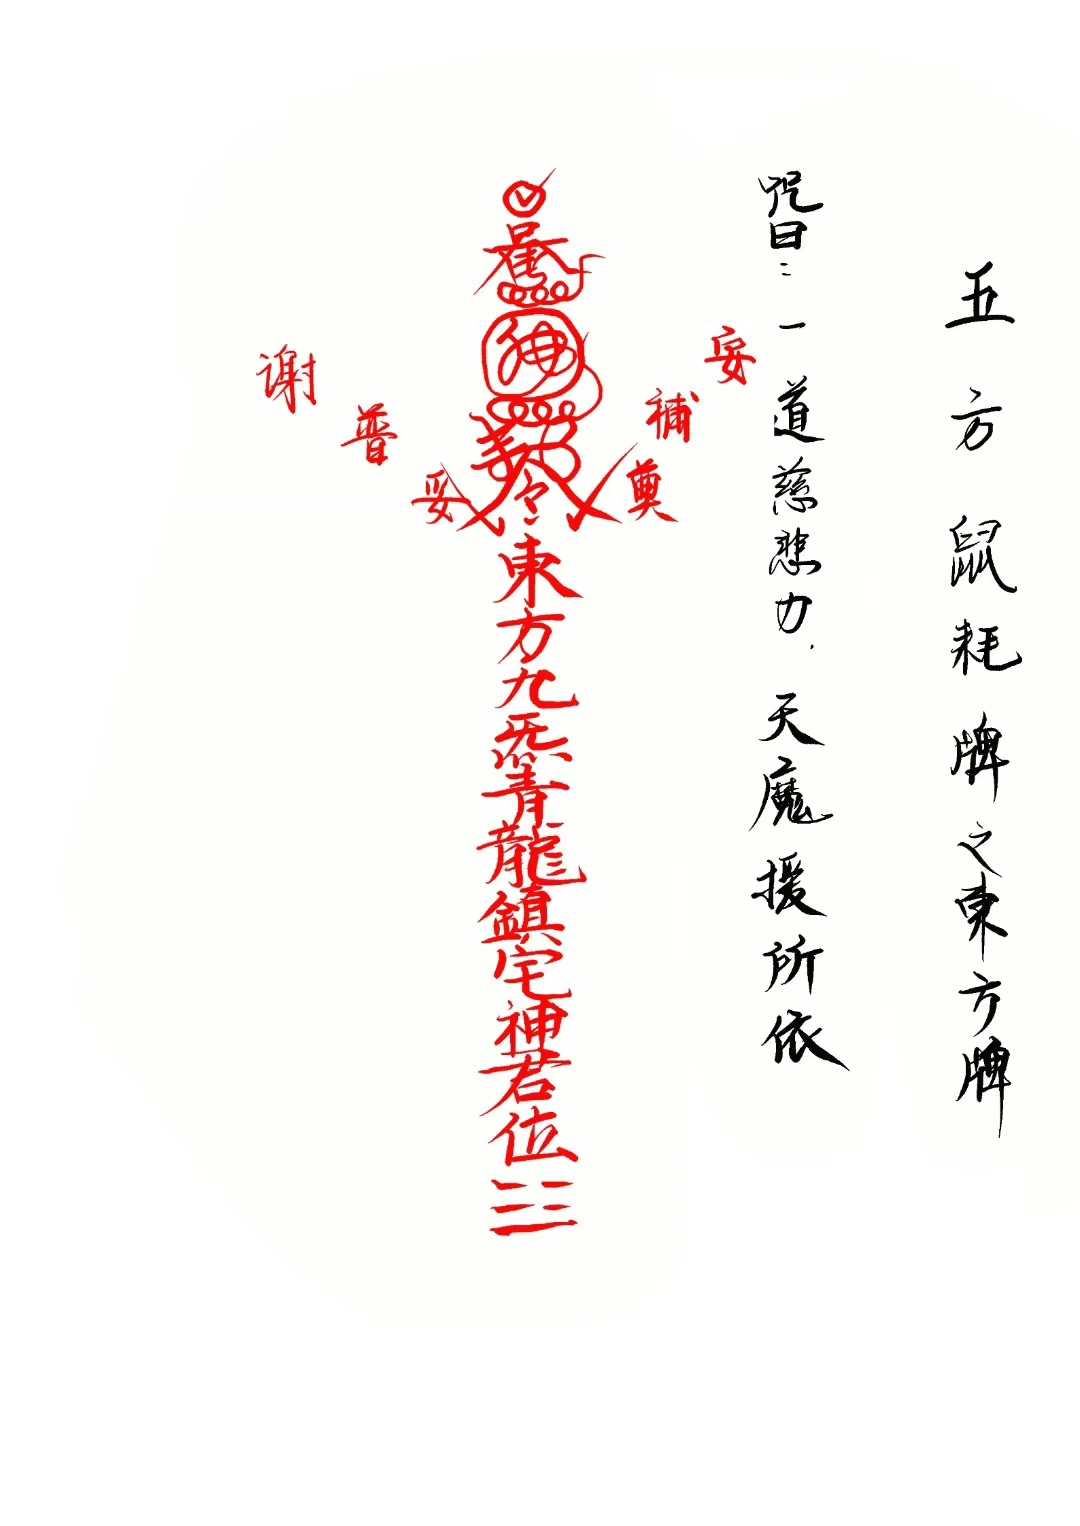 五方鼠耗牌之東方牌
咒曰：一道慈悲力.天魔援所依
妥補奠
令東方九炁青龍鎮宅神君位
謝普妥